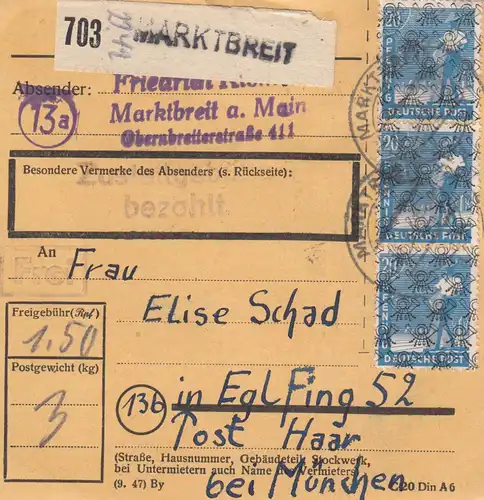 703 MARKTBREIT
Absender:
13a
Marktbreit a. Main
Obernbreiterstraße 411
Besondere Vermerke des Absenders (s. Rückseite):
bezahlt
An
Frau
Frei
Elise Schad
Freigebühr (Rpf)
1.50
Postgewicht (kg)
3
13b
in Eglfing 52
Post Haar
bei München
(Straße, Hausnummer, Gebäudeteil, Stockwerk,
bei Untermietern auch Name des Vermieters)
(9. 47) By
C 20 Din A 6
20
PFENNIG
DEUTSCHE POST
20
PFENNIG
DEUTSCHE POST
20
PFENNIG
DEUTSCHE POST